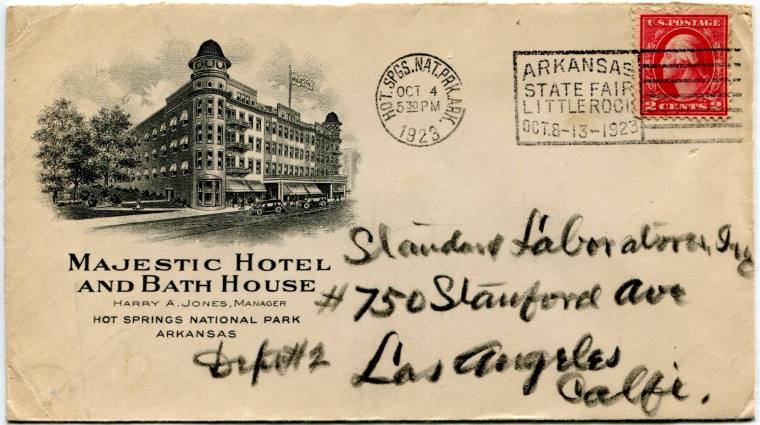 MAJESTIC
HOT.SPGS.NAT.PRK.ARK.
OCT 4
5 30 PM
1923
ARKANSAS
STATE FAIR
LITTLE ROCK
OCT. 8-13-1923
U.S. POSTAGE
2 CENTS 2
MAJESTIC HOTEL
AND BATH HOUSE
HARRY A. JONES, MANAGER
HOT SPRINGS NATIONAL PARK
ARKANSAS
Standard Laboratories, Inc
#750 Stanford Ave
Los Angeles
Calfi.
Dept #2